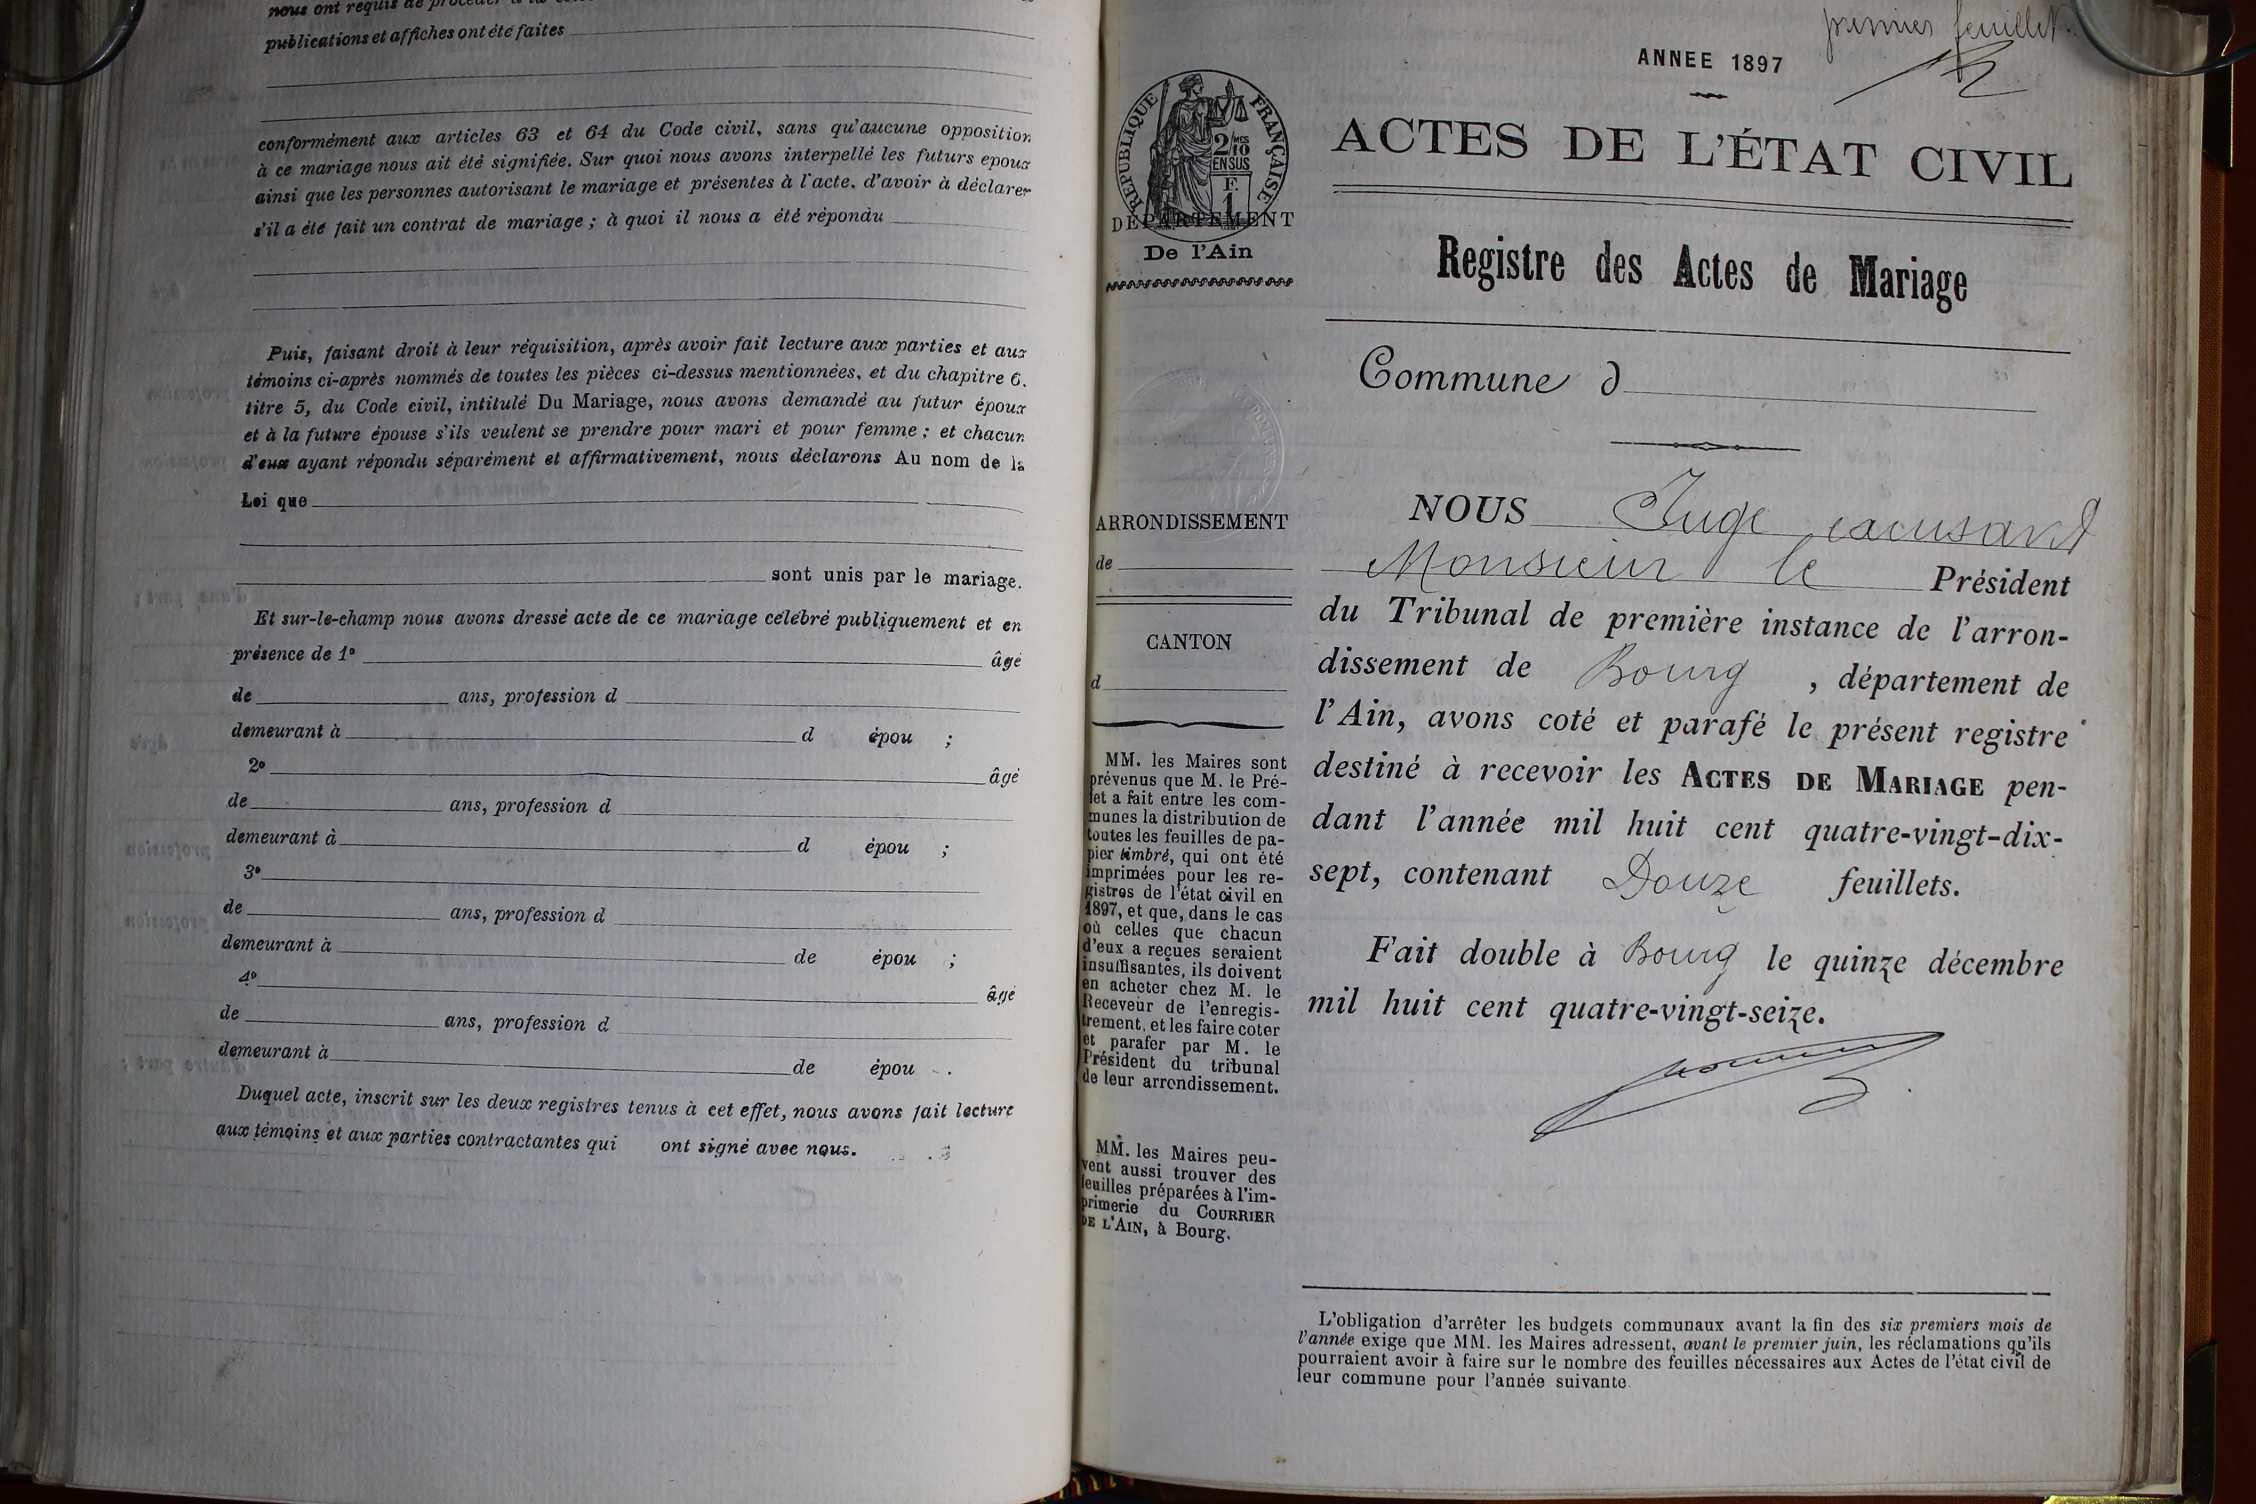 nous ont requis de procéder
publications et affiches ont été faites
conformément aux articles 63 et 64 du Code civil, sans qu'aucune opposition
à ce mariage nous ait été signifiée. Sur quoi nous avons interpellé les futurs epoux
ainsi que les personnes autorisant le mariage et présentes à l'acte, d'avoir à déclarer
s'il a été fait un contrat de mariage ; à quoi il nous a été répondu
Puis, faisant droit à leur réquisition, après avoir fait lecture aux parties et aux
témoins ci-après nommés de toutes les pièces ci-dessus mentionnées, et du chapitre 6,
titre 5, du Code civil, intitulé Du Mariage, nous avons demandé au futur époux
et à la future épouse s'ils veulent se prendre pour mari et pour femme ; et chacun
d'eux ayant répondu séparément et affirmativement, nous déclarons Au nom de la
Loi que
sont unis par le mariage.
Et sur-le-champ nous avons dressé acte de ce mariage célébré publiquement et en
présence de 1º âgé
de ans, profession d
demeurant à d épou ;
2º âgé
de ans, profession d
demeurant à d épou ;
3º
de ans, profession d
demeurant à de épou ;
4º âgé
de ans, profession d
demeurant à de épou .
Duquel acte, inscrit sur les deux registres tenus à cet effet, nous avons fait lecture
aux témoins et aux parties contractantes qui ont signé avec nous.
premier feuillet
ANNEE 1897
RÉPUBLIQUE FRANÇAISE
2/10 MES
EN SUS
F.
1
DÉPARTEMENT
De l'Ain
ACTES DE L'ÉTAT CIVIL
Registre des Actes de Mariage
Commune d
ARRONDISSEMENT
de
CANTON
d
MM. les Maires sont
prévenus que M. le Pré-
fet a fait entre les com-
munes la distribution de
toutes les feuilles de pa-
pier timbré, qui ont été
imprimées pour les re-
gistres de l'état civil en
1897, et que, dans le cas
où celles que chacun
d'eux a reçues seraient
insuffisantes, ils doivent
en acheter chez M. le
Receveur de l'enregis-
trement, et les faire coter
et parafer par M. le
Président du tribunal
de leur arrondissement.
MM. les Maires peu-
vent aussi trouver des
feuilles préparées à l'im-
primerie du COURRIER
DE L'AIN, à Bourg.
NOUS Juge excusant
Monsieur le Président
du Tribunal de première instance de l'arron-
dissement de Bourg , département de
l'Ain, avons coté et parafé le présent registre
destiné à recevoir les ACTES DE MARIAGE pen-
dant l'année mil huit cent quatre-vingt-dix-
sept, contenant Douze feuillets.
Fait double à Bourg le quinze décembre
mil huit cent quatre-vingt-seize.
L'obligation d'arrêter les budgets communaux avant la fin des six premiers mois de
l'année exige que MM. les Maires adressent, avant le premier juin, les réclamations qu'ils
pourraient avoir à faire sur le nombre des feuilles nécessaires aux Actes de l'état civil de
leur commune pour l'année suivante